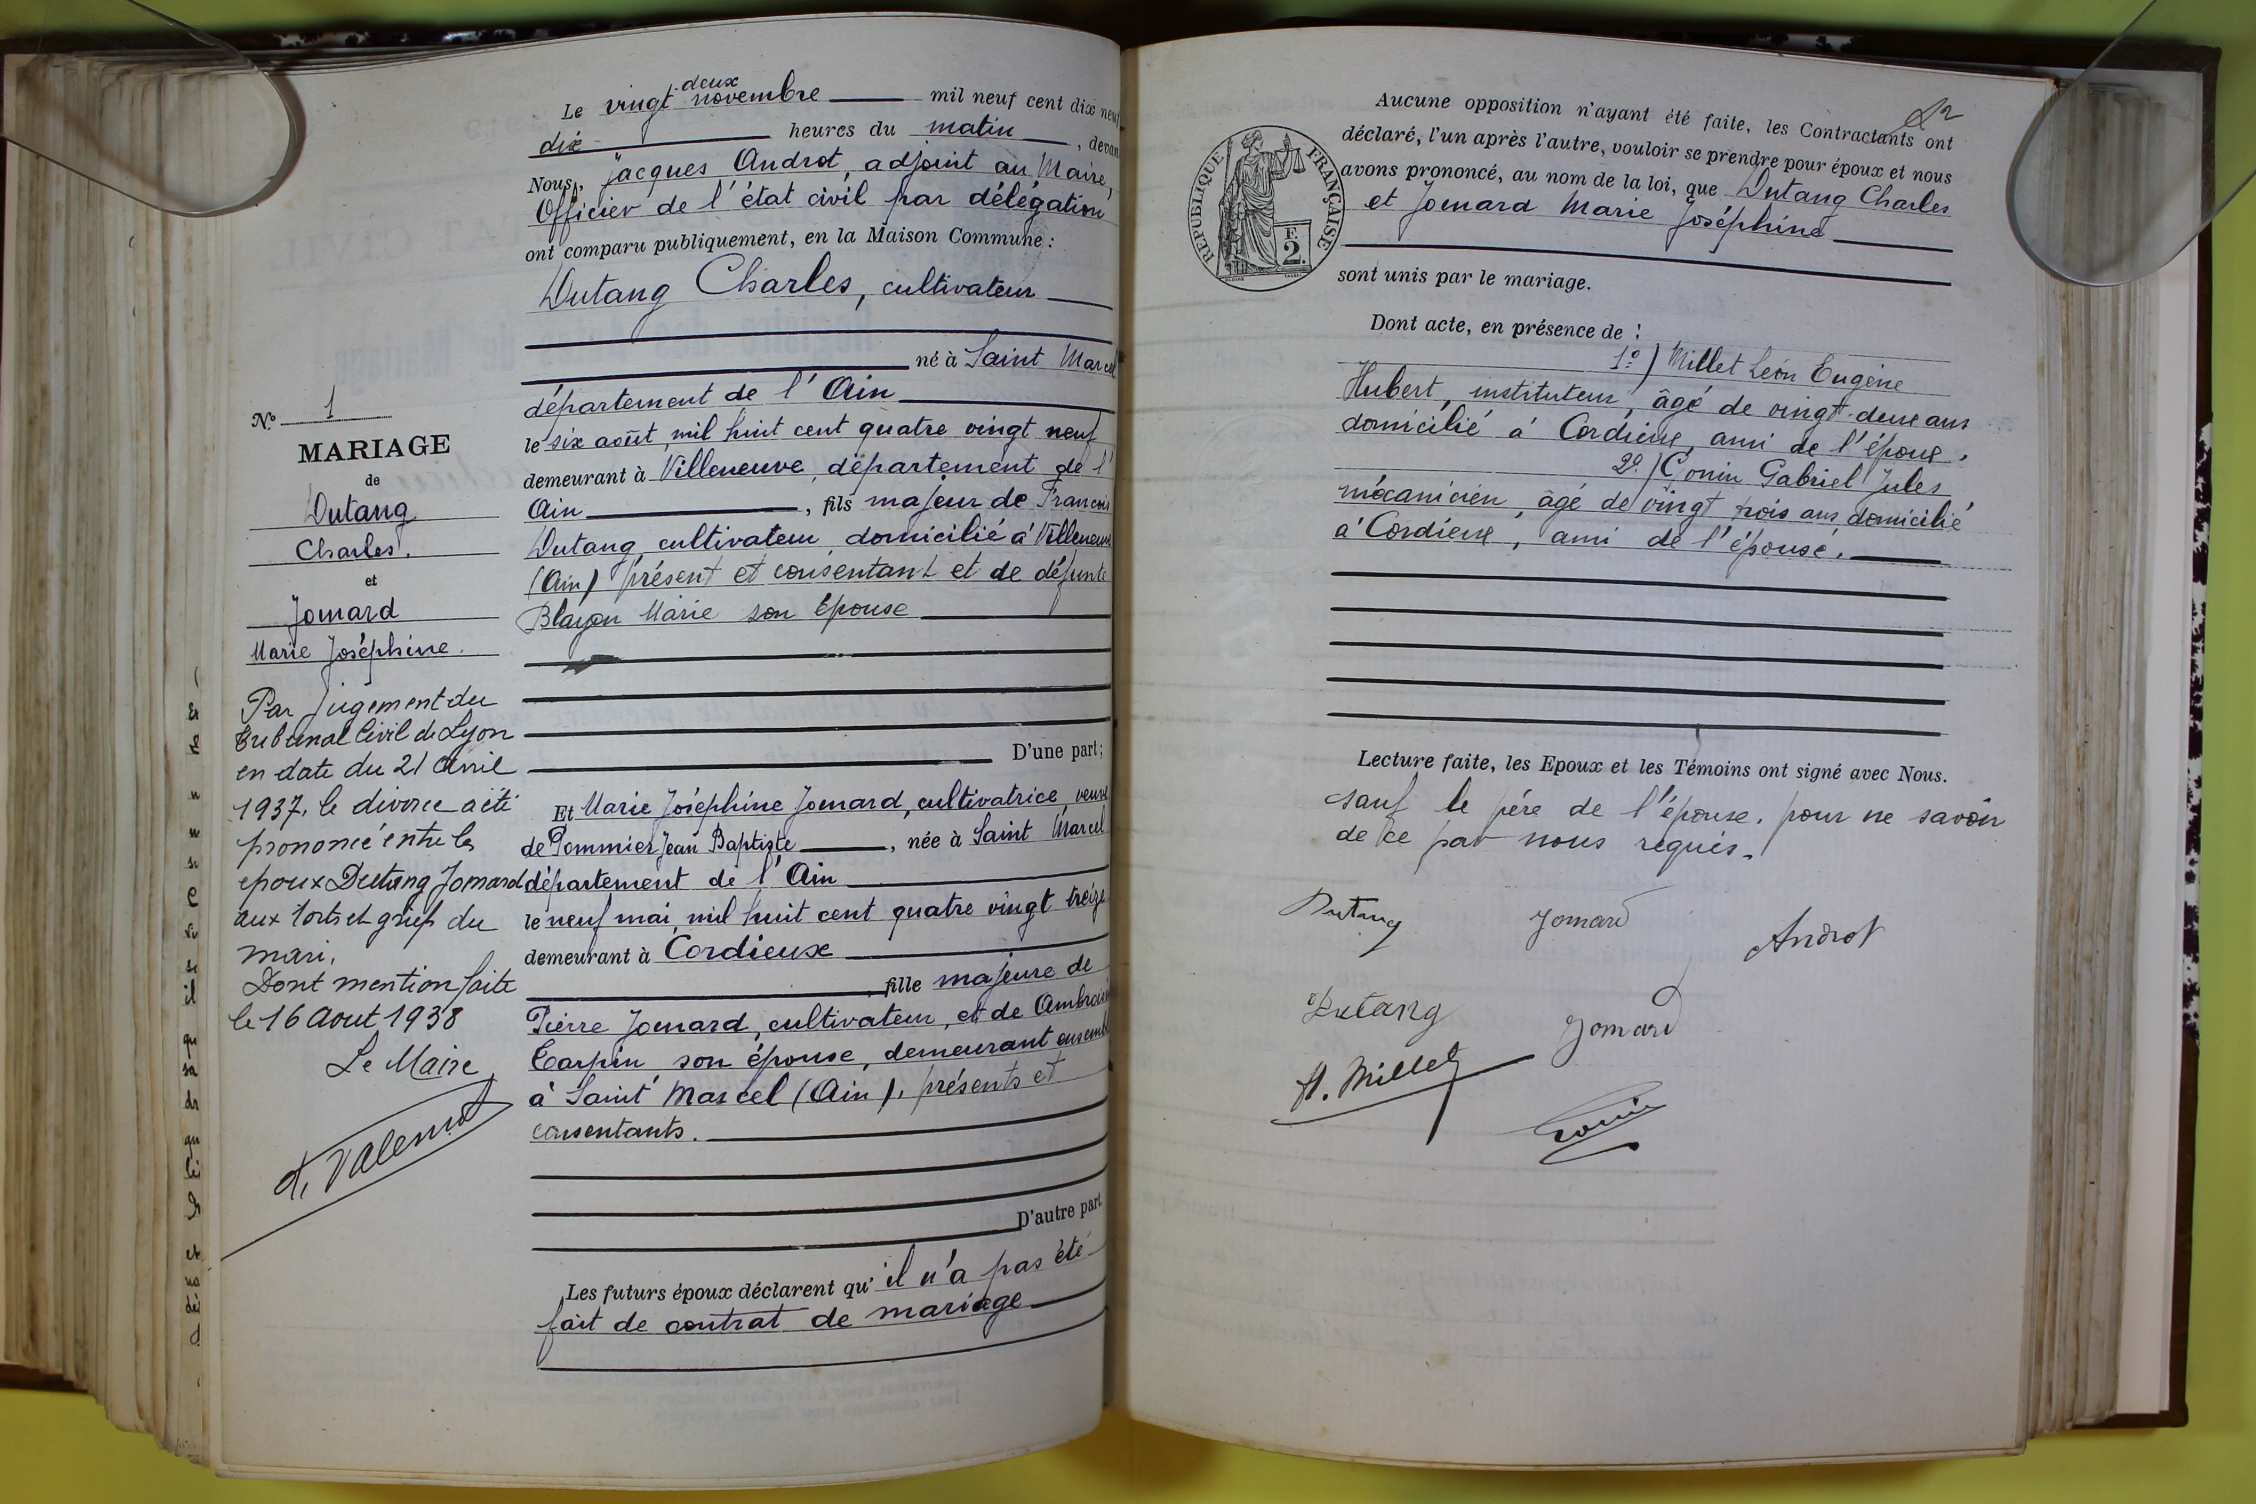 N.º 1
MARIAGE
de
Dutang
Charles.
et
Jomard
Marie Joséphine.
Par jugement du
tribunal Civil de Lyon
en date du 21 avril
1937, le divorce a été
prononcé entre les
époux Dutang Jomard
aux torts et griefs du
mari.
Dont mention faite
le 16 Aout 1938
Le Maire
Le vingt-deux novembre mil neuf cent dix neuf
dix heures du matin, devant
Nous, Jacques Androt, adjoint au Maire,
Officier de l'état civil par délégation
ont comparu publiquement, en la Maison Commune :
Dutang Charles, cultivateur
né à Saint Marcel
département de l'Ain
le six août mil huit cent quatre vingt neuf
demeurant à Villeneuve, département de l'
Ain, fils majeur de François
Dutang, cultivateur, domicilié à Villeneuve
(Ain) présent et consentant et de défunte
Blayon Marie son épouse
D'une part;
Et Marie Joséphine Jomard, cultivatrice, veuve
de Pommier Jean Baptiste, née à Saint Marcel
département de l'Ain
le neuf mai mil huit cent quatre vingt treize
demeurant à Cordieux
fille majeure de
Pierre Jomard, cultivateur, et de Ambroisine
Carpin son épouse, demeurant ensemble
à Saint Marcel (Ain), présents et
consentants.
D'autre part
Les futurs époux déclarent qu'il n'a pas été
fait de contrat de mariage
RÉPUBLIQUE FRANÇAISE
F.
2.
Aucune opposition n'ayant été faite, les Contractants ont
déclaré, l'un après l'autre, vouloir se prendre pour époux et nous
avons prononcé, au nom de la loi, que Dutang Charles
et Jomard Marie Joséphine
sont unis par le mariage.
Dont acte, en présence de :
1º) Millet Léon Eugène
Hubert, instituteur, âgé de vingt-deux ans
domicilié à Cordieux, ami de l'époux.
2º) Gonin Gabriel Jules
mécanicien, âgé de vingt trois ans domicilié
à Cordieux, ami de l'épouse.
Lecture faite, les Epoux et les Témoins ont signé avec Nous.
sauf le père de l'épouse, pour ne savoir
de ce par nous requis.
Dutang
Jomard
Androt
Dutang
Jomard
H. Millet
Gonin